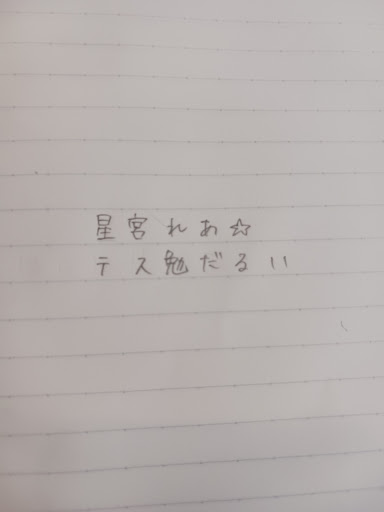 星宮れあ☆
テス勉だるい